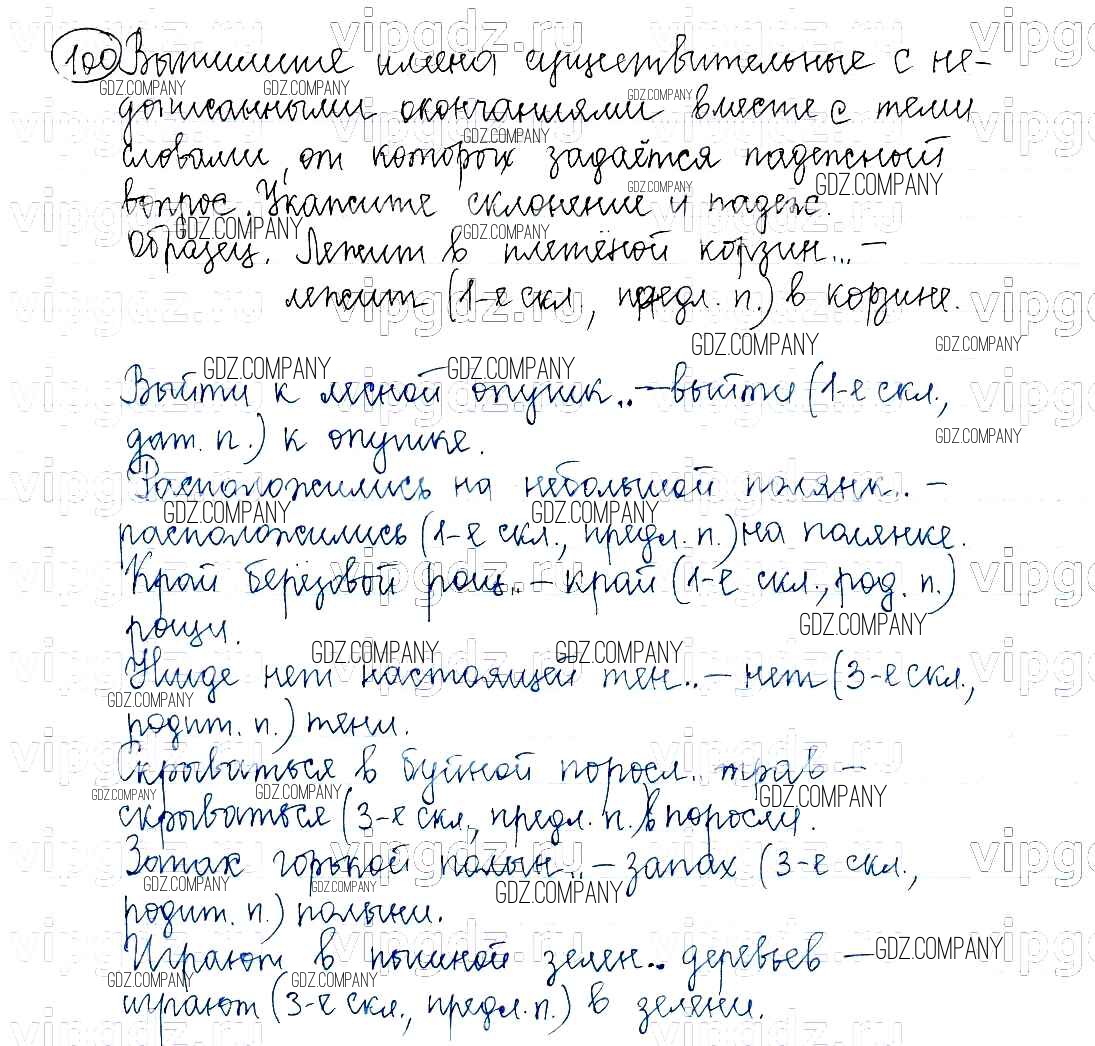 100 Выпишите имена существительные с не-
дописанными окончаниями вместе с теми
словами, от которых задаётся падежный
вопрос. Укажите склонение и падеж.
Образец. Лежит в плетёной корзин... –
лежит (1-е скл., предл. п.) в корзине.
Выйти к лесной опушк.. – выйти (1-е скл.,
дат. п.) к опушке.
Расположились на небольшой полянк.. –
расположились (1-е скл., предл. п.) на полянке.
Край берёзовой рощ.. – край (1-е скл., род. п.)
рощи.
Нигде нет настоящей тен.. – нет (3-е скл.,
родит. п.) тени.
Скрываться в буйной поросл.. трав –
скрываться (3-е скл., предл. п.) в поросли.
Запах горькой полын.. – запах (3-е скл.,
родит. п.) полыни.
Играют в пышной зелен.. деревьев –
играют (3-е скл., предл. п.) в зелени.